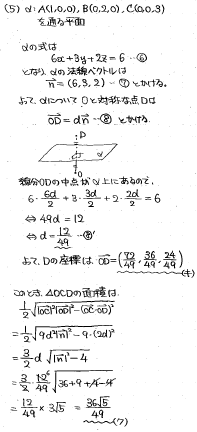 (5) α: A(1,0,0), B(0,2,0), C(0,0,3)
を通る平面
αの式は
6x+3y+2z=6 …⑥
となり、αの法線ベクトルは
n⃗=(6,3,2) …⑦ とかける。
よって、αについて Oと対称な点Dは
OD⃗ = dn⃗ …⑧ とかける
D
α
O
線分ODの中点がα上にあるので、
6・6d/2 + 3・3d/2 + 2・2d/2 = 6
⇔ 49d = 12
⇔ d = 12/49 …⑧'
よって、Dの座標は OD⃗ = (72/49, 36/49, 24/49)
このとき、△OCDの面積は
1/2 √(|OC⃗|²|OD⃗|² - (OC⃗・OD⃗)²)
= 1/2 √(9d²|n⃗|² - 9・(2d)²)
= 3/2 d √(|n⃗|² - 4)
= 3/2・12/49 √(36+9+4-4)
= 12/49 × 3√5 = 36√5/49